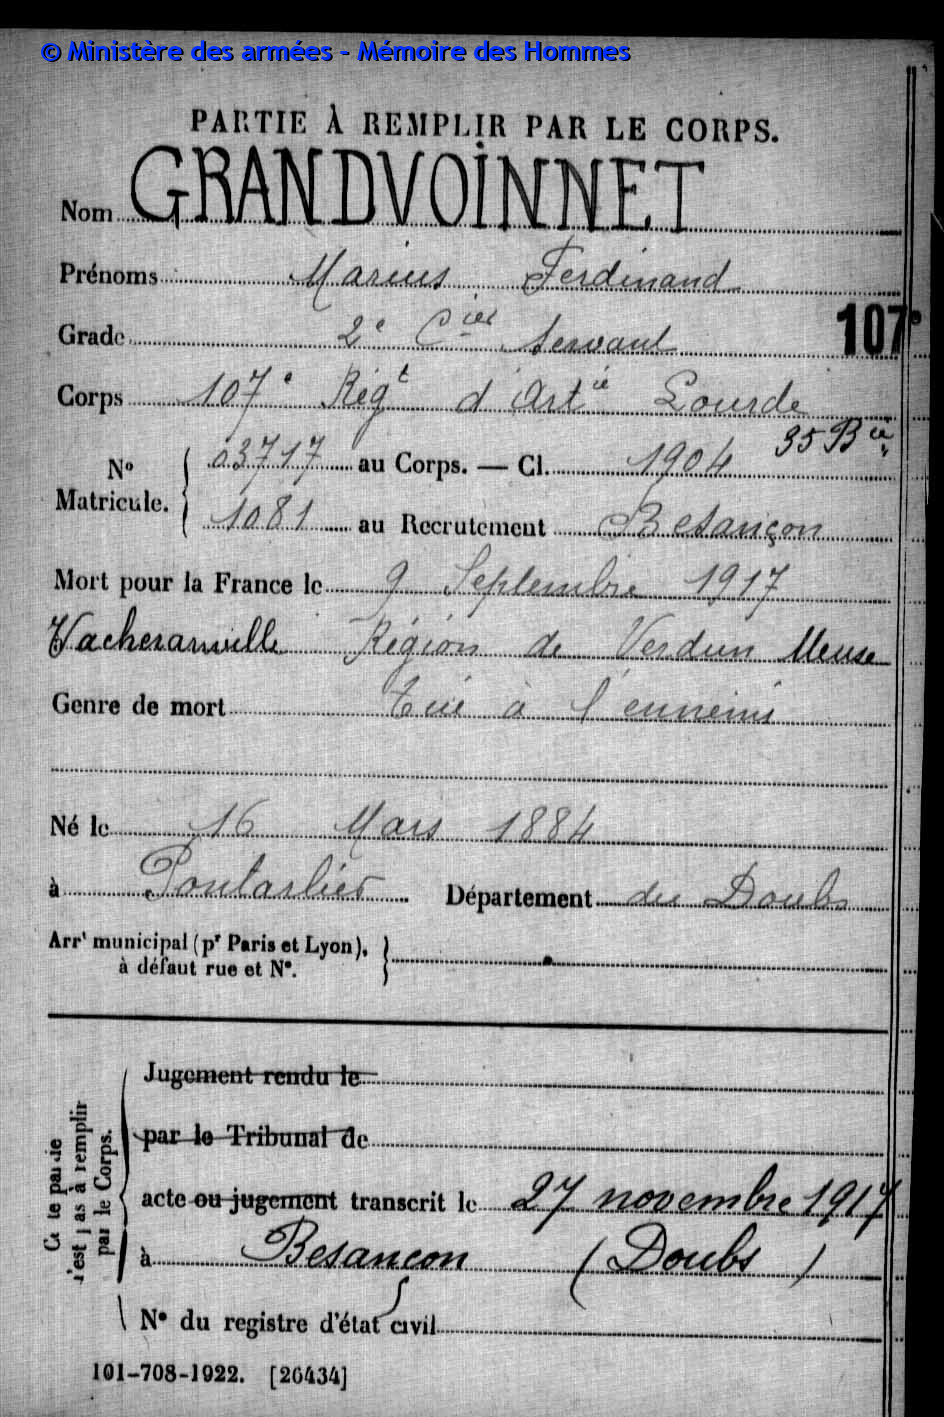 © Ministère des armées - Mémoire des Hommes
PARTIE À REMPLIR PAR LE CORPS.
Nom GRANDVOINNET
Prénoms Marius Ferdinand
Grade 2e Cier Servant
107e
Corps 107e Régt d'Artie Lourde
35 Bie
No Matricule. { 03717 au Corps. — Cl. 1904
1081 au Recrutement Besançon
Mort pour la France le 9 Septembre 1917
Vacherauville Région de Verdun Meuse
Genre de mort Tué à l'ennemi
Né le 16 Mars 1884
à Pontarlier Département du Doubs
Arrt municipal (pr Paris et Lyon),
à défaut rue et No.
Cette partie
n'est pas à remplir
par le Corps.
Jugement rendu le
par le Tribunal de
acte ou jugement transcrit le 27 novembre 1917
à Besancon (Doubs)
No du registre d'état civil
101-708-1922. [26434]